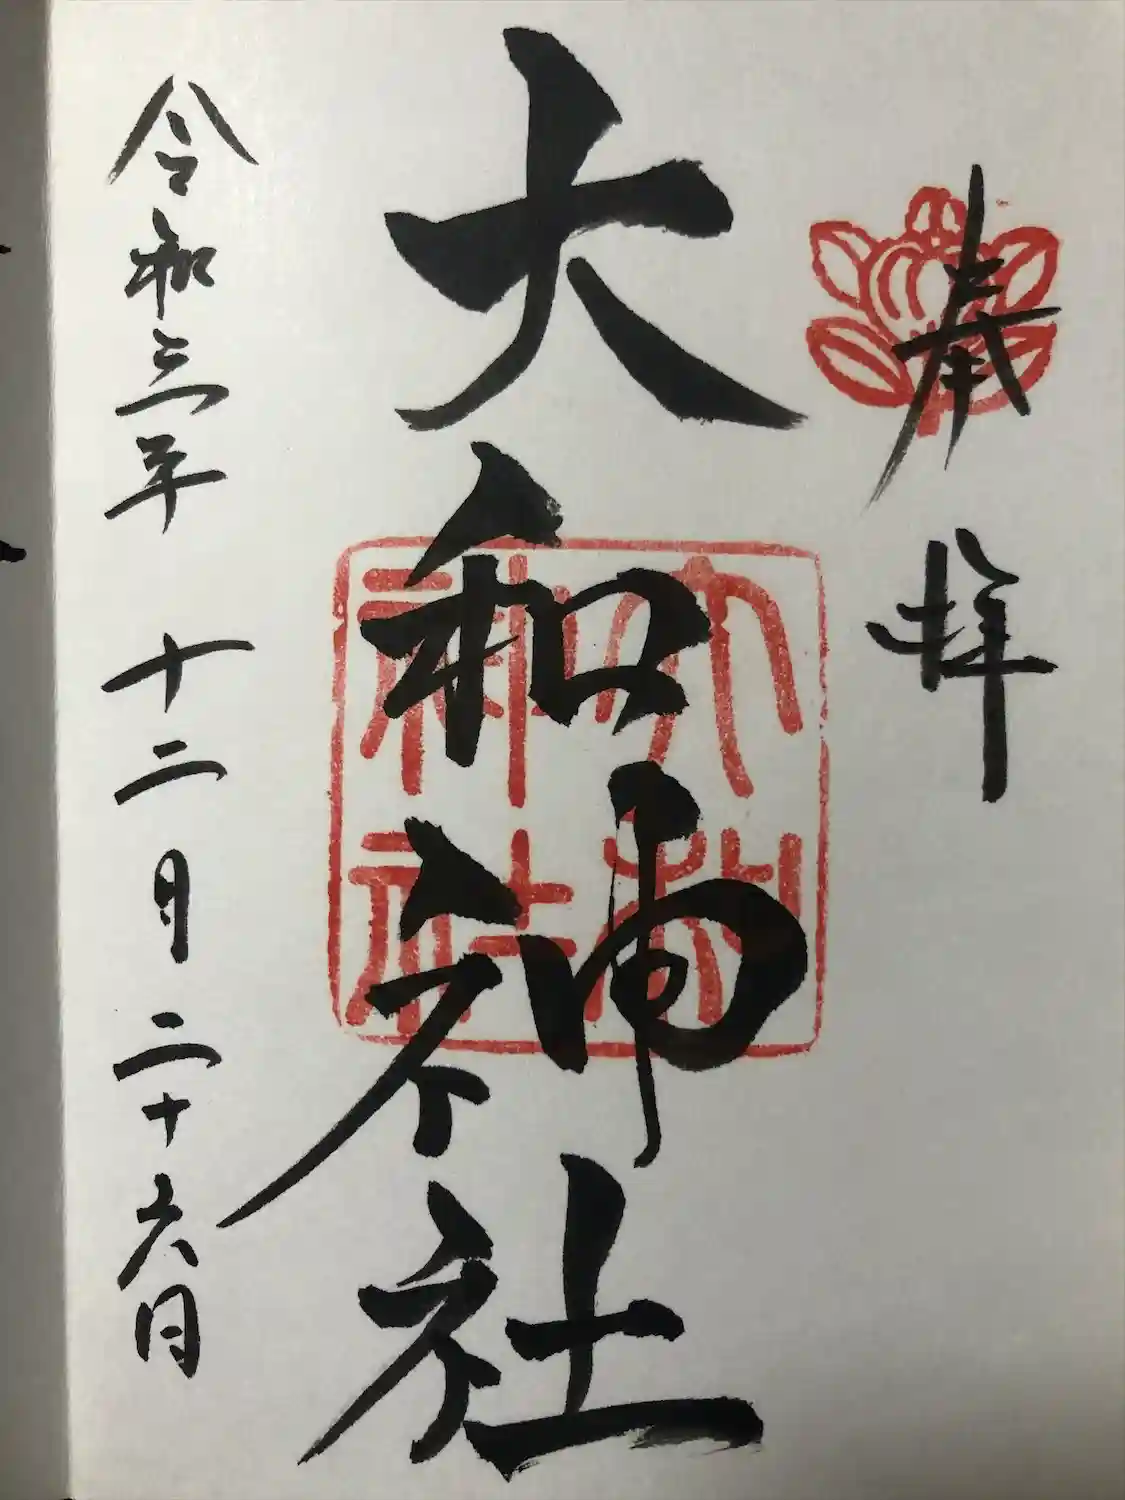 奉拝
大和神社
大和神社
令和三年 十二月 二十六日